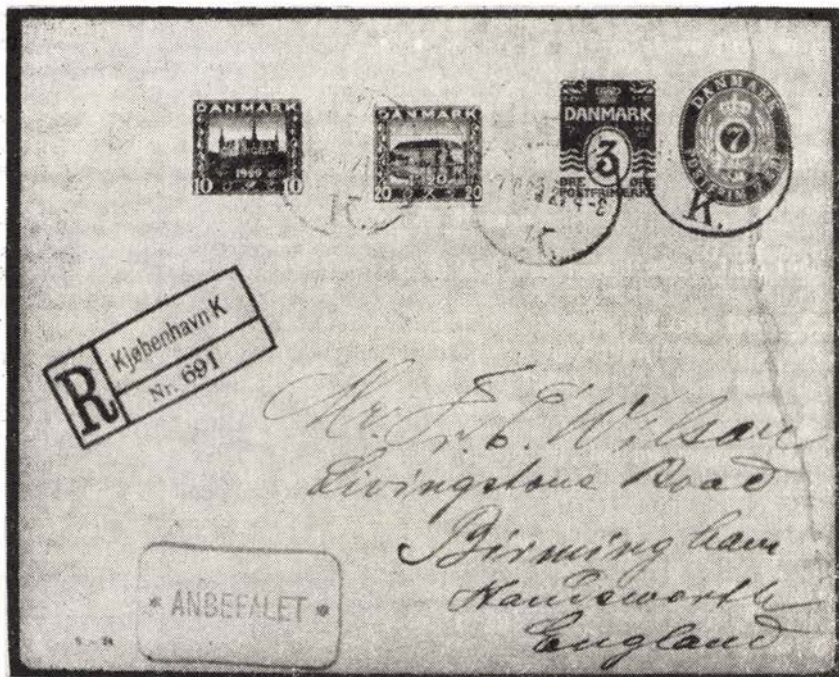 DANMARK
10 1920 10
DANMARK
20 20
DANMARK
3
ØRE ØRE
POSTFRIMÆRKE
DANMARK
7
POSTFRIMÆRKE
K.
K.
K.
R
Kjøbenhavn K
Nr. 691
Mr. F. E. Wilson
Livingstone Road
Birmingham
Handsworth
England
* ANBEFALET *